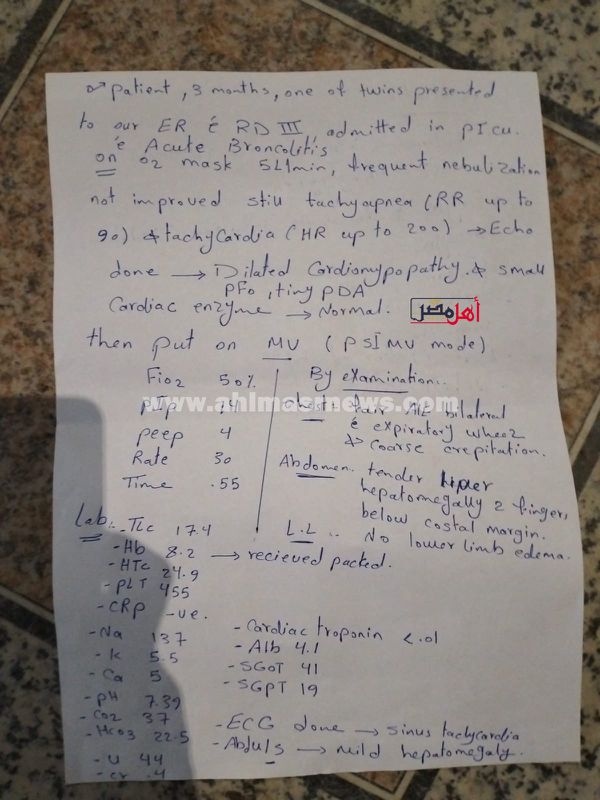 ♂ patient, 3 months, one of twins presented
to our ER c̄ RD III, admitted in PICU.
c̄ Acute Broncolitis
on O2 mask 5L/min, frequent nebulization
not improved still tachyapnea (RR up to
90) & tachycardia (HR up to 200) → Echo
done → Dilated Cardiomypopathy & small
PFO, tiny PDA
Cardiac enzyme → Normal.
أهل مصر
then put on MV (PSIMV mode)
Fio2 50%
PIP
peep 4
Rate 30
Time .55
www.ahlmasrnews.com
By examination..
chest: fair AE bilateral
c̄ expiratory wheez
& coarse crepitation.
Abdomen. tender
hepatomegally 2 finger,
below costal margin.
L.L .. No lower limb edema.
Lab:- TLC 17.4
- Hb 8.2 → recieved packed.
- HTC 24.9
- PLT 455
- CRP -ve.
- Na 137
- K 5.5
- Ca 5
- pH 7.39
- Co2 37
- HCO3 22.5
- U 44
- cr .4
- Cardiac troponin <.01
- Alb 4.1
- SGOT 41
- SGPT 19
- ECG done → sinus tachycardia
- Abd u/s → mild hepatomegaly.